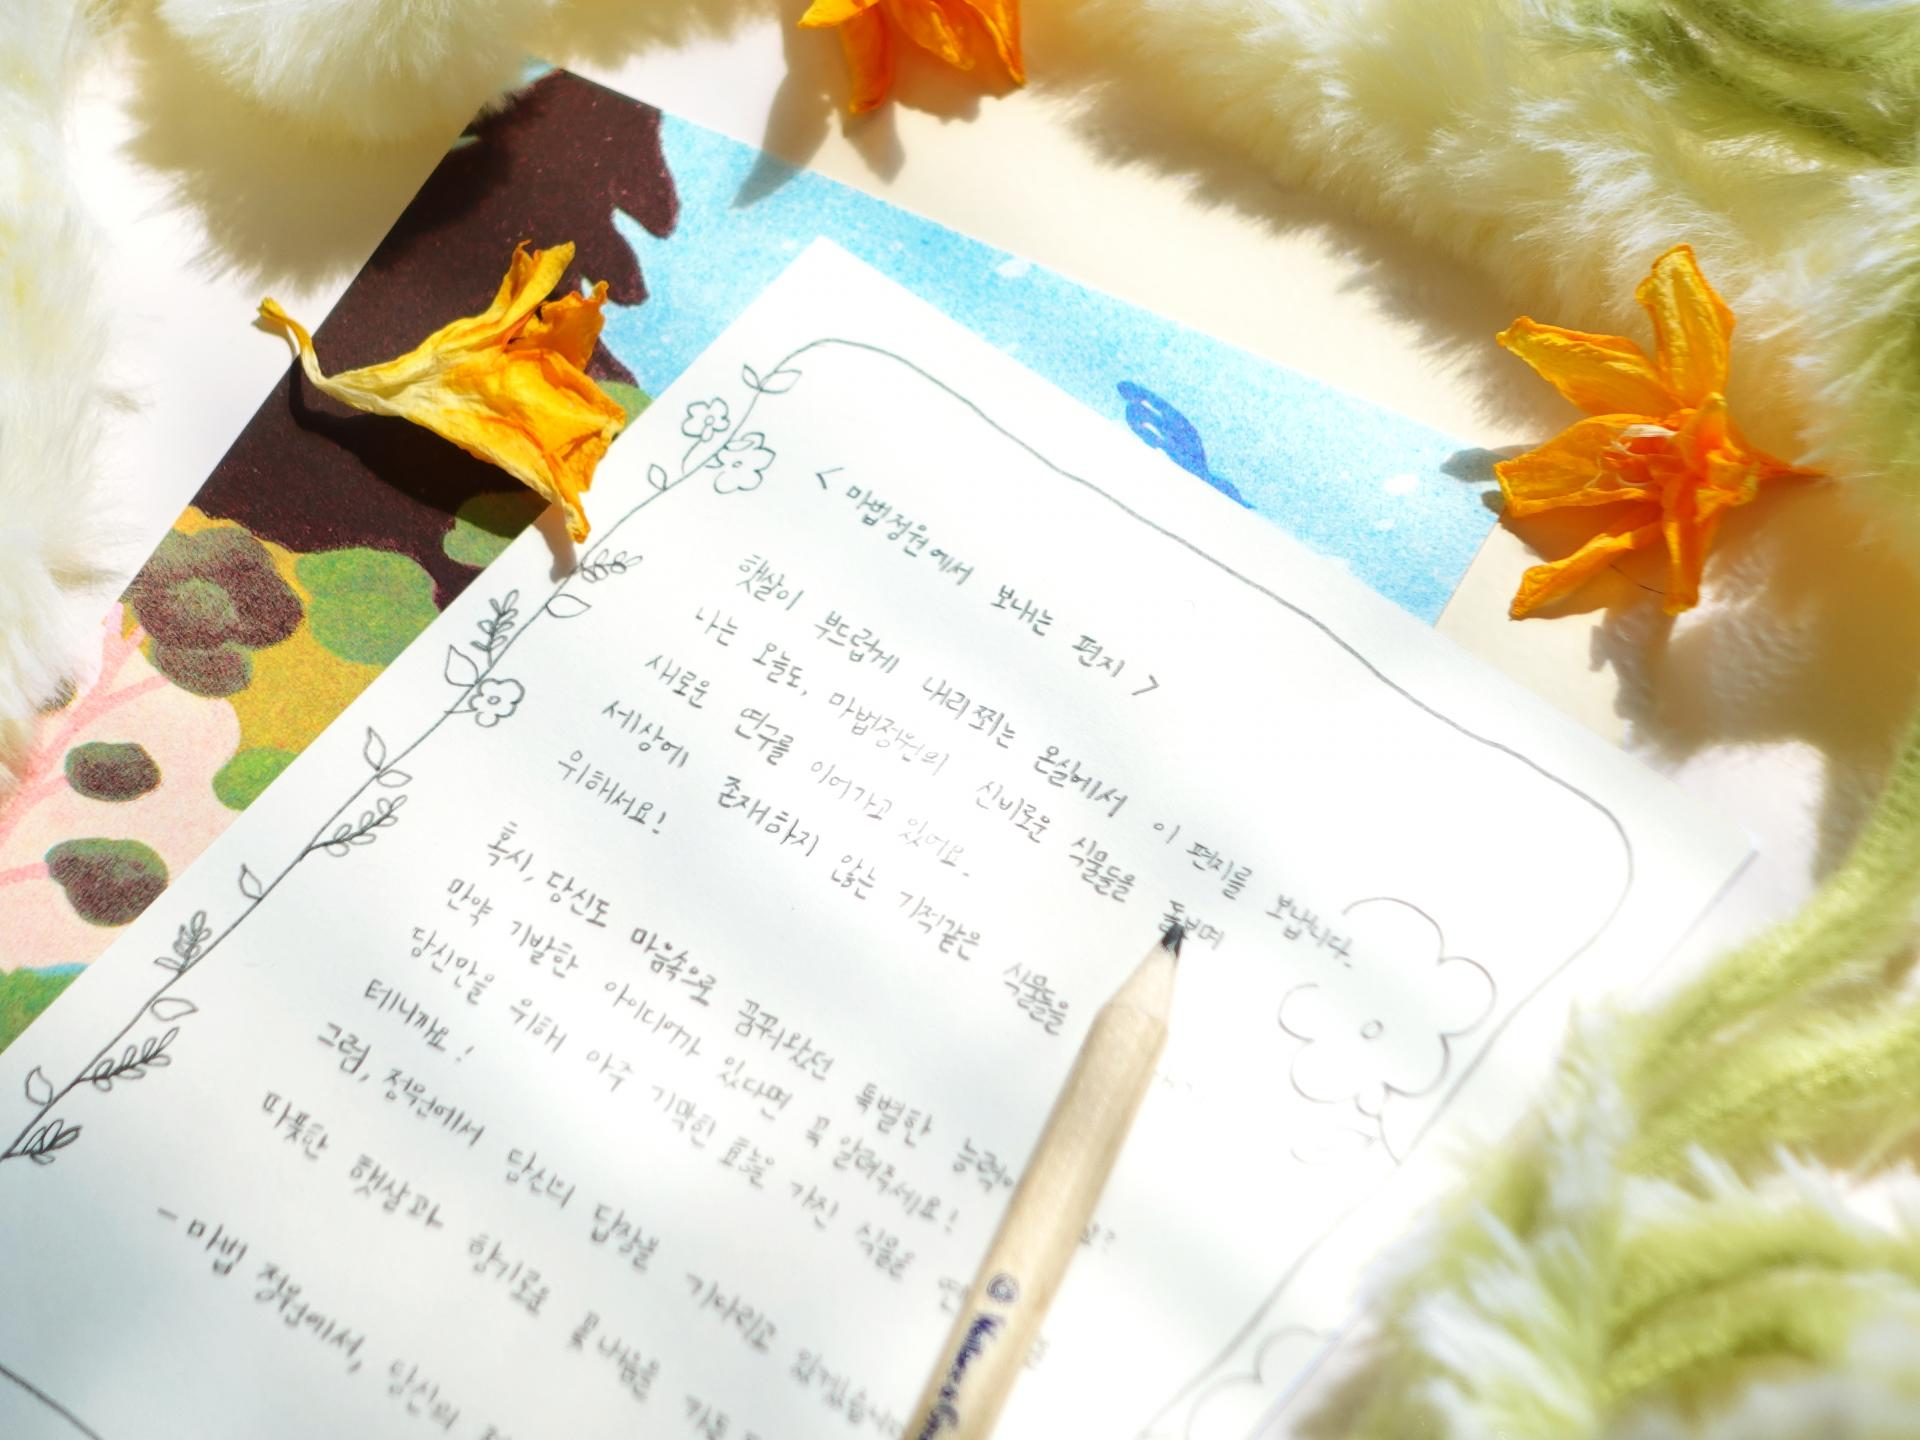 < 마법정원에서 보내는 편지 >
햇살이 부드럽게 내리쬐는 온실에서 이 편지를 보냅니다.
나는 오늘도, 마법정원의 신비로운 식물들을 돌보며
새로운 연구를 이어가고 있어요.
세상에 존재하지 않는 기적같은 식물들을
위해서요!
혹시, 당신도 마음속으로 꿈꿔왔던 특별한 능력이
만약 기발한 아이디어가 있다면 꼭 알려주세요!
당신만을 위해 아주 기막힌 효능을 가진 식물을
테니까요!
그럼, 정원에서 당신의 답장을 기다리고 있겠습니다
따뜻한 햇살과 향기로운 꽃내음을 가득
- 마법 정원에서, 당신의